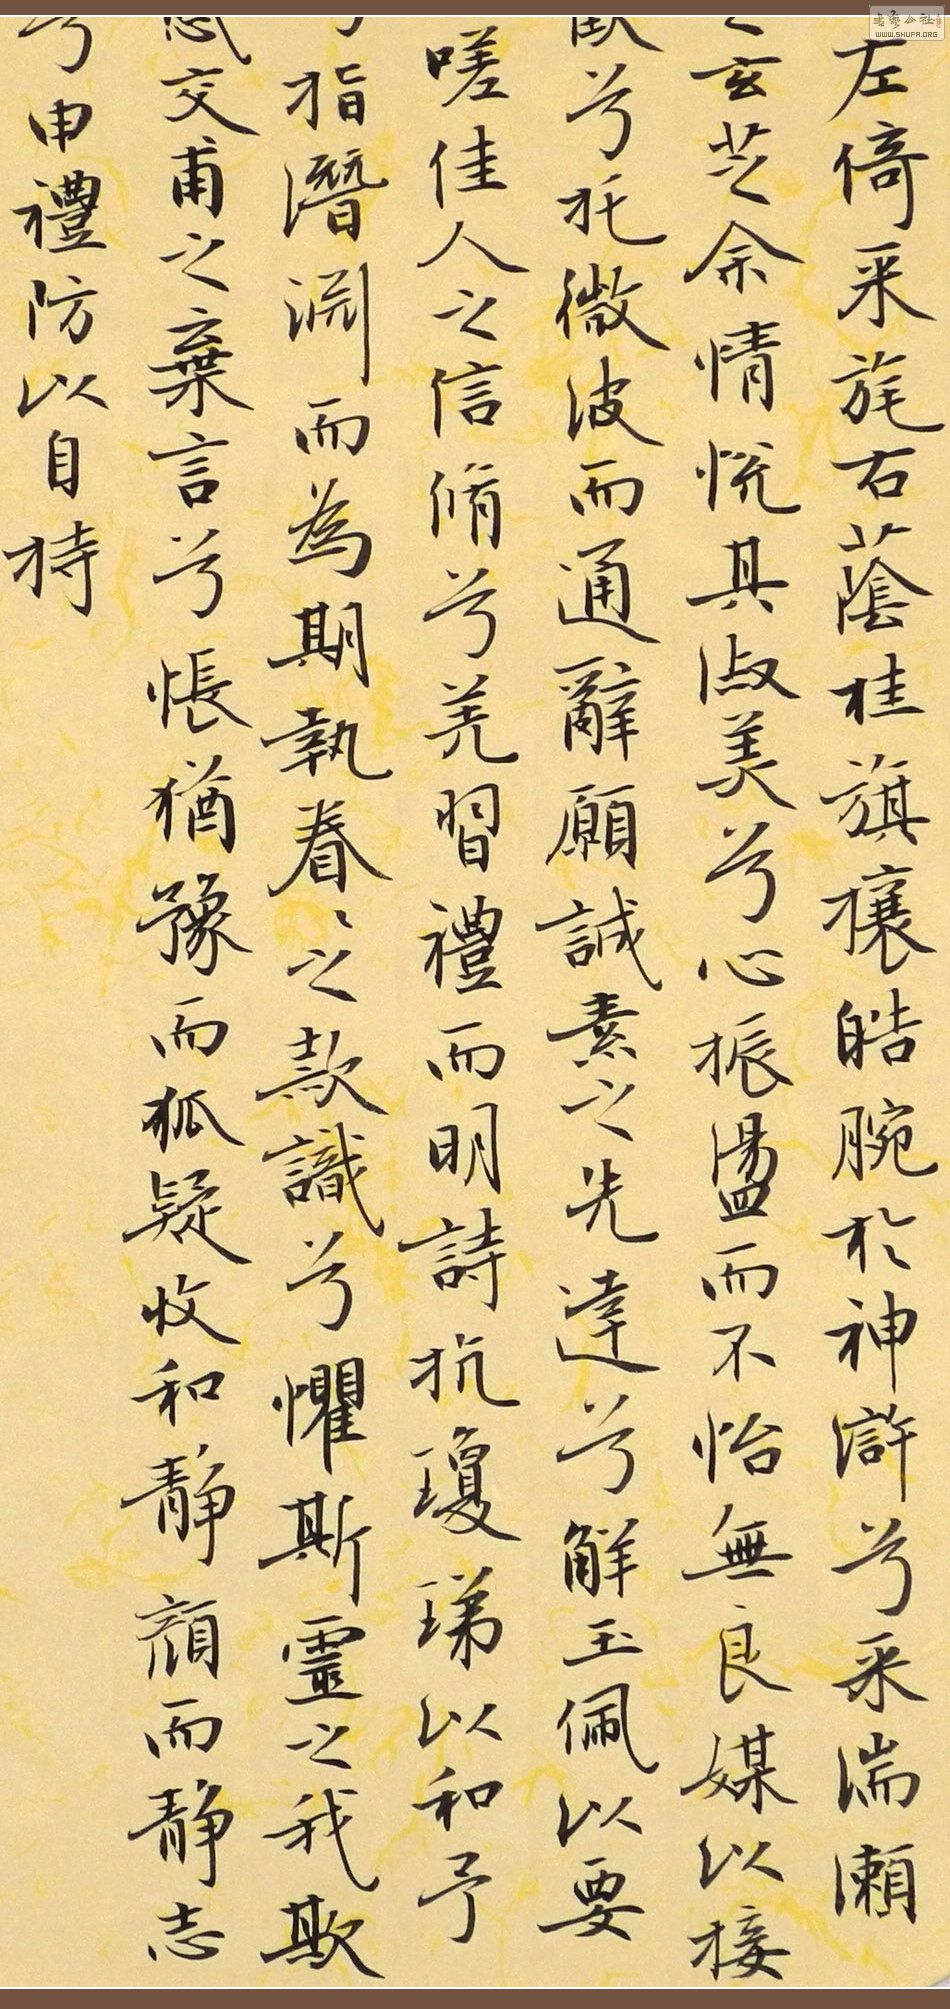 左倚采旄右蔭桂旗攘皓腕於神滸兮采湍瀨
之玄芝余情悅其淑美兮心振盪而不怡無良媒以接
歡兮托微波而通辭願誠素之先達兮解玉佩以要
嗟佳人之信脩兮羌習禮而明詩抗瓊珶以和予
兮指潛淵而為期執眷〻之款識兮懼斯靈之我欺
感交甫之棄言兮悵猶豫而狐疑收和靜顔而靜志
兮申禮防以自持
書藝公社
WWW.SHUFA.ORG